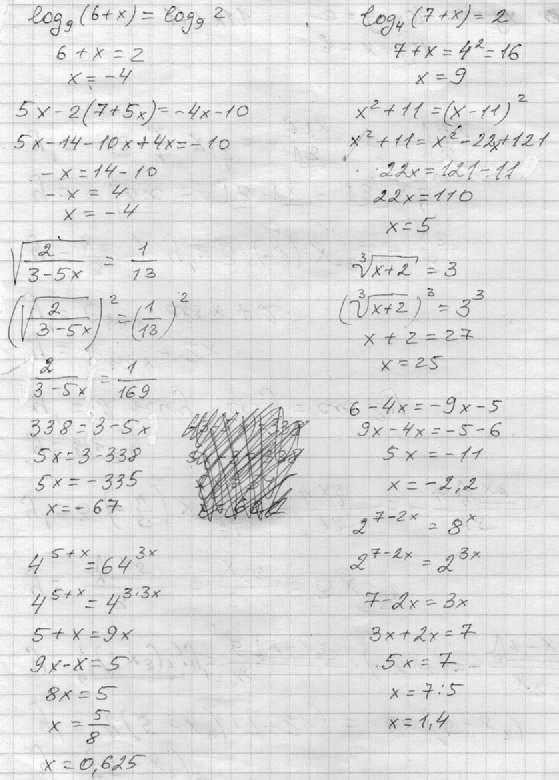 log₉(6+x) = log₉ 2
6 + x = 2
x = -4
5x - 2(7+5x) = -4x - 10
5x - 14 - 10x + 4x = -10
-x = 14 - 10
-x = 4
x = -4
√(2/(3-5x)) = 1/13
(√(2/(3-5x)))² = (1/13)²
2/(3-5x) = 1/169
338 = 3 - 5x
5x = 3 - 338
5x = -335
x = -67
4^(5+x) = 64^(3x)
4^(5+x) = 4^(3·3x)
5 + x = 9x
9x - x = 5
8x = 5
x = 5/8
x = 0,625
log₄(7+x) = 2
7 + x = 4² = 16
x = 9
x² + 11 = (x - 11)²
x² + 11 = x² - 22x + 121
22x = 121 - 11
22x = 110
x = 5
∛(x+2) = 3
(∛(x+2))³ = 3³
x + 2 = 27
x = 25
6 - 4x = -9x - 5
9x - 4x = -5 - 6
5x = -11
x = -2,2
2^(7-2x) = 8^x
2^(7-2x) = 2^(3x)
7 - 2x = 3x
3x + 2x = 7
5x = 7
x = 7:5
x = 1,4